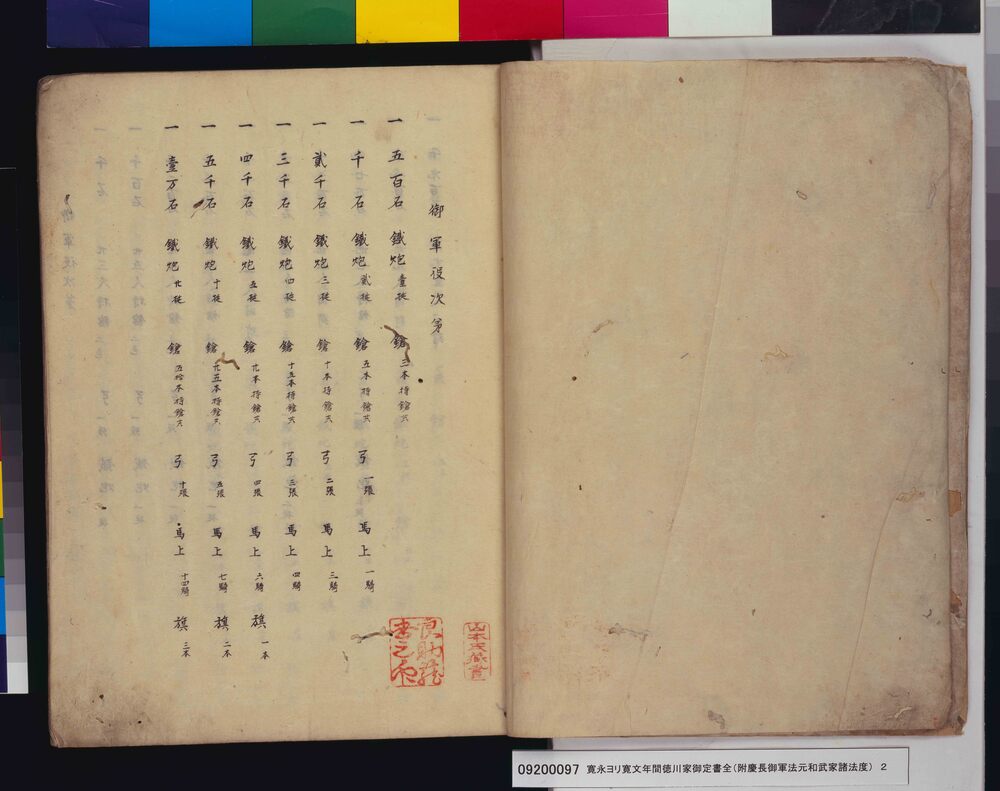 御軍役次第
一 五百石 鐵炮壹挺 鎗三本持鎗共
一 千石 鐵炮貳挺 鎗五本持鎗共 弓一張 馬上一騎
一 貳千石 鐵炮三挺 鎗十本持鎗共 弓二張 馬上三騎
一 三千石 鐵炮四挺 鎗十五本持鎗共 弓三張 馬上四騎
一 四千石 鐵炮五挺 鎗廿本持鎗共 弓四張 馬上六騎 旗一本
一 五千石 鐵炮十挺 鎗廿五本持鎗共 弓五張 馬上七騎 旗二本
一 壹万石 鐵炮廿挺 鎗五拾本持鎗共 弓十張 馬上十四騎 旗三本
山本氏藏書
09200097 寛永ヨリ寛文年間徳川家御定書全(附慶長御軍法元和武家諸法度) 2